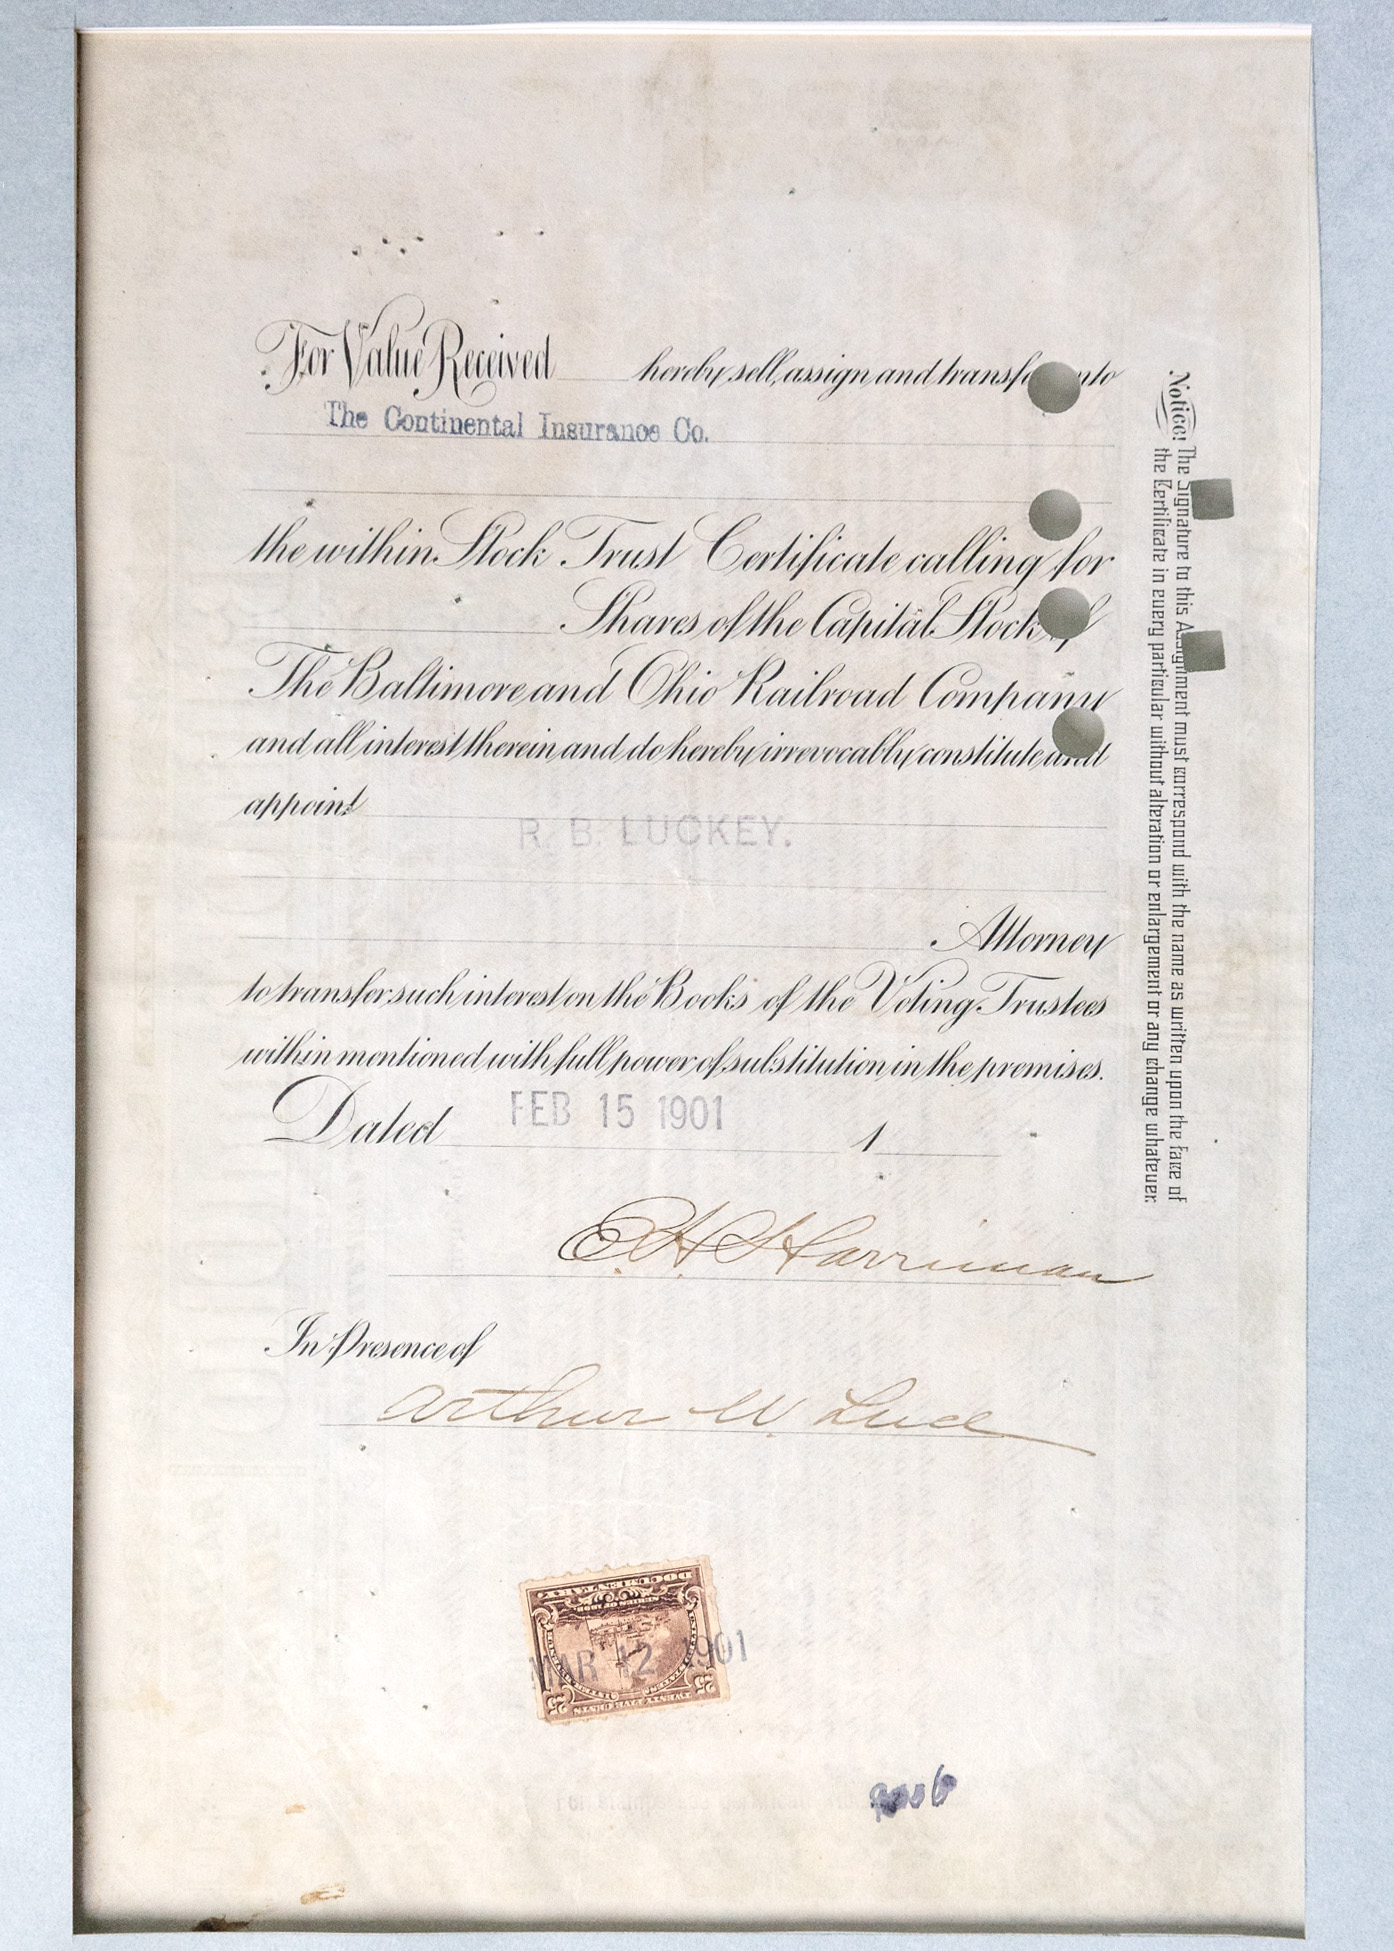 For Value Received hereby sell, assign and transfer unto
The Continental Insurance Co.
the within Stock Trust Certificate calling for
Shares of the Capital Stock of
The Baltimore and Ohio Railroad Company
and all interest therein and do hereby irrevocably constitute and
appoint
R. B. LUCKEY.
Attorney
to transfer such interest on the Books of the Voting Trustees
within mentioned with full power of substitution in the premises.
Dated FEB 15 1901 1
E. H. Harriman
In Presence of
Arthur W. Luce
Notice! The Signature to this Assignment must correspond with the name as written upon the face of
the Certificate in every particular without alteration or enlargement or any change whatever.
DOCUMENTARY
SERIES OF 1898
TWENTY FIVE CENTS
25 25
MAR 12 1901